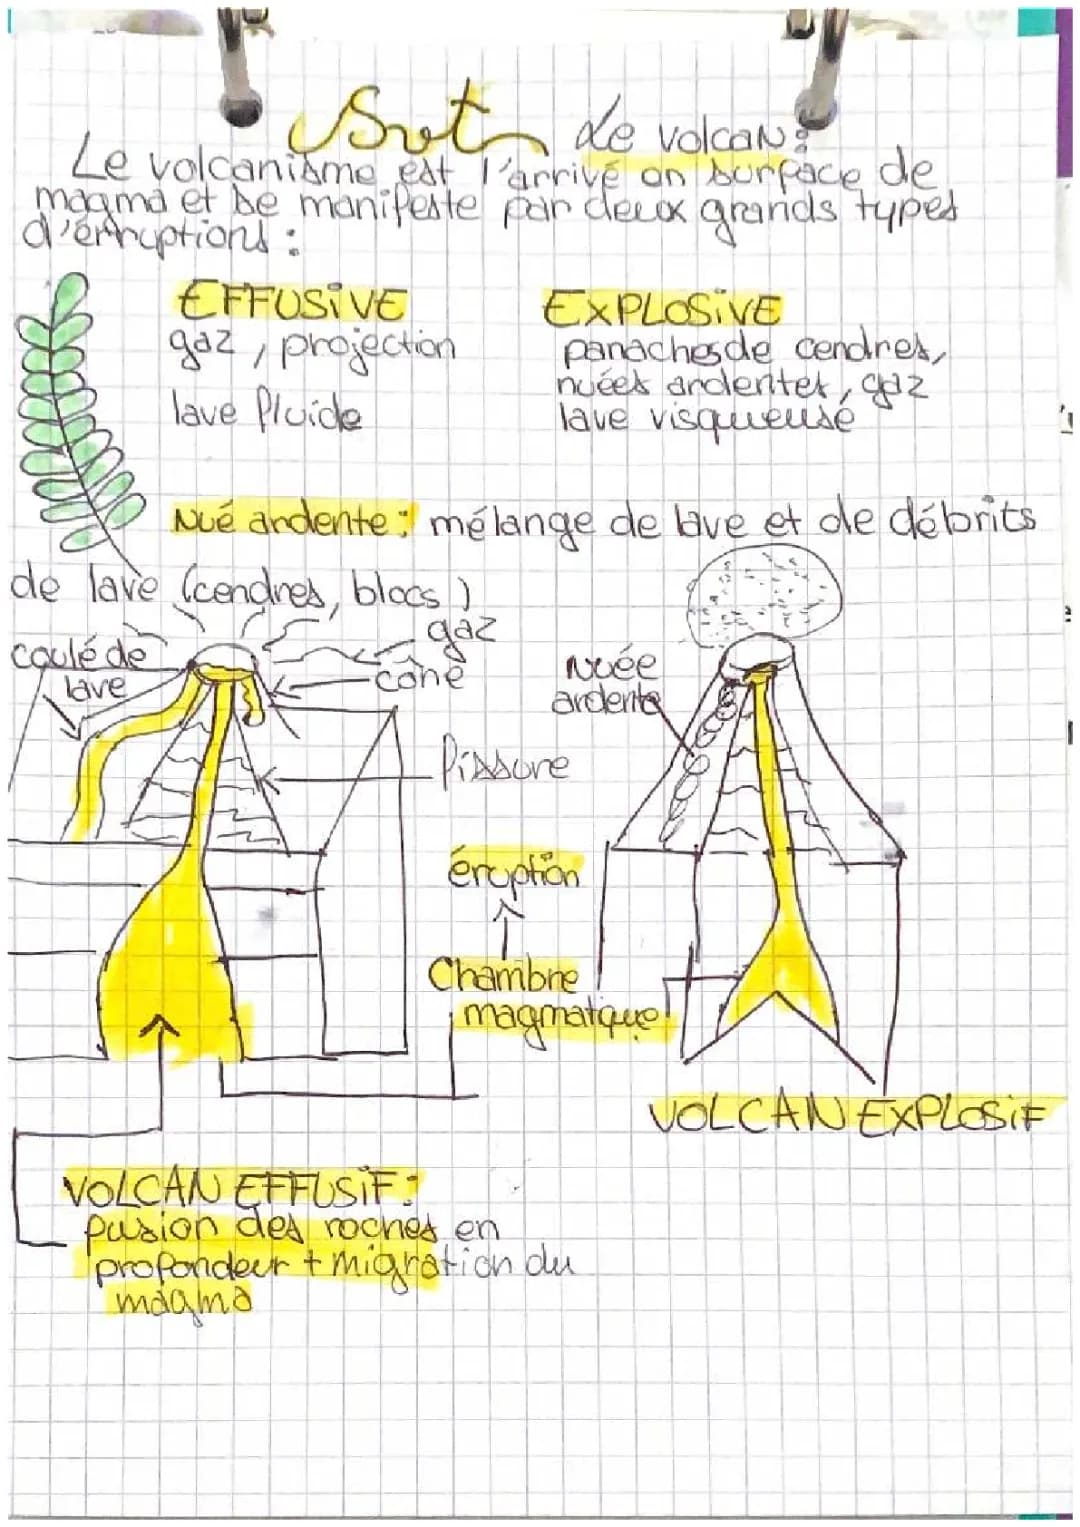 Svt Le volcan :
Le volcanisme est l'arrivé en surface de
magma et se manifeste par deux grands types
d'érruptions :
EFFUSIVE
gaz, projection
lave fluide
EXPLOSIVE
panaches de cendres,
nuées ardentes, gaz
lave visqueuse
Nué ardente : mélange de lave et de débrits
de lave (cendres, blocs)
gaz
coulé de
lave
cône
fissure
nuée
ardente
éruption
Chambre
magmatique
VOLCAN EXPLOSIF
VOLCAN EFFUSIF :
fusion des roches en
profondeur + migration du
magma